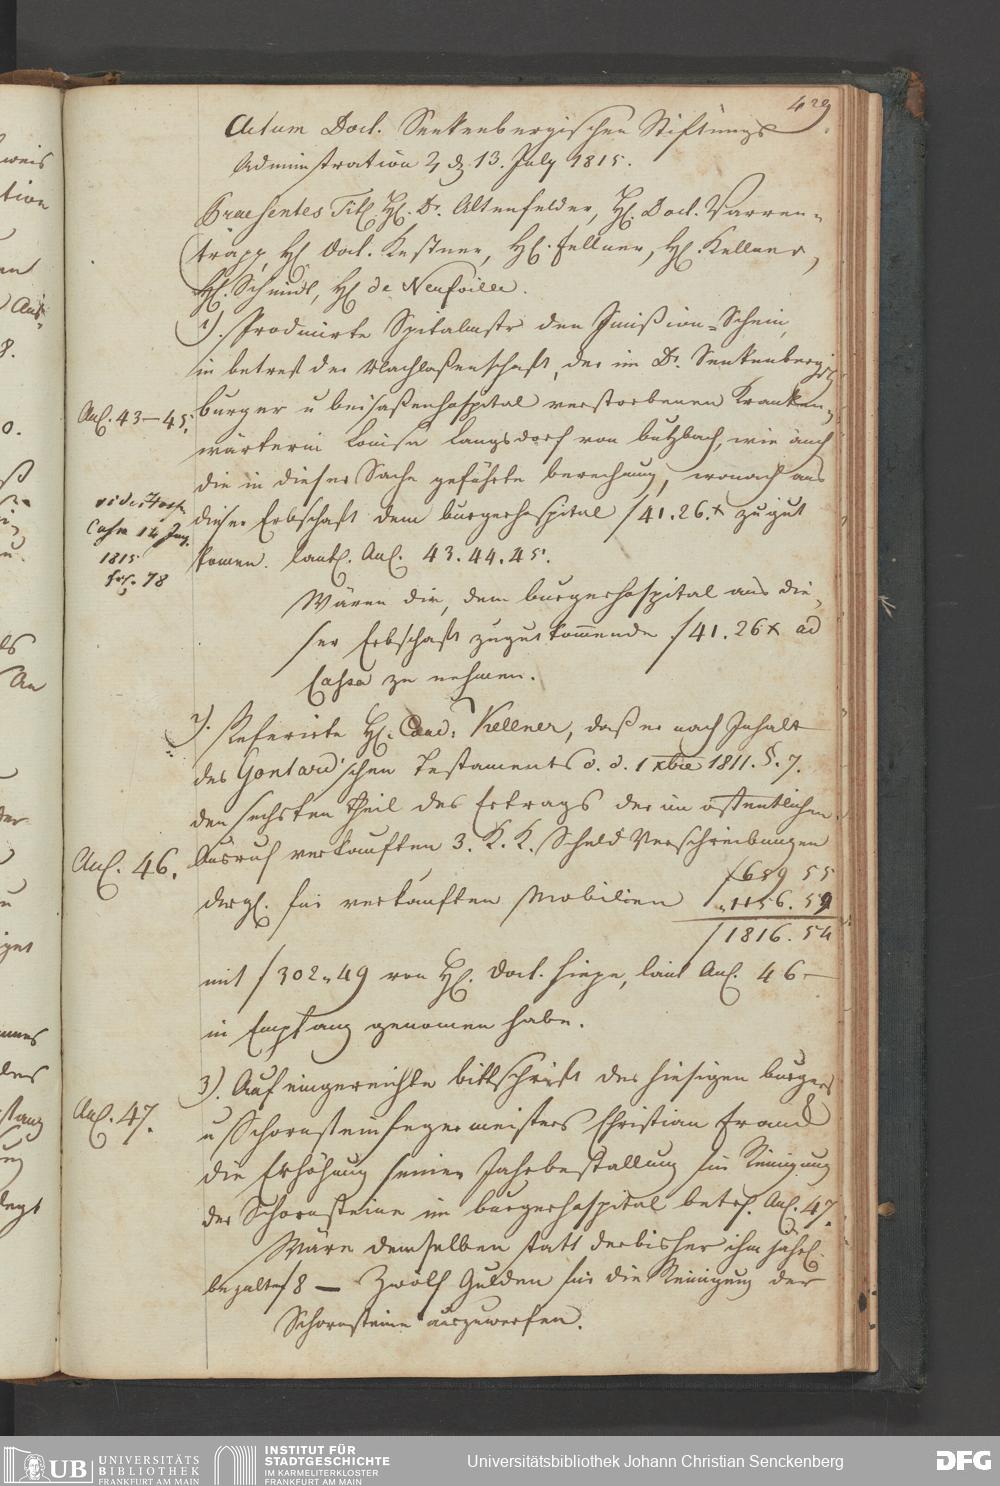 429.
Actum Doct. Senkenbergischen Stiftungs
Administration 2 d. 13. July 1815.
Praesentes Titl. H. Dr. Altenfelder, H. Doct. Varren-
trapp, H. Doct. Kestner, H. Fellner, H. Kellner,
H. Schmidt, H. de Neufville.
1). Producirte Spitalmstr den Imißion-Schein,
in betreff der Nachlaßenschaft, der im Dr. Senkenberg.
Anl. 43–45.
burger u beisaßenhospital verstorbenen Kranken-
wärterin Louise Langsdorf von butzbach, wie auch
die in dieser Sache geführte berechnung, wonach aus
vide
Cassa 14 July
1815
fol. 78
dieser Erbschaft dem burgerhospital f 41.26.x zu gut
komen. laut. Anl. 43.44.45.
Wären die, dem burgerhospital aus die-
ser Erbschaft zugut kommende f 41.26x ad
Cassa zu nehmen.
2). Referirte H. Cand. Kellner, daß er nach Inhalt
des Gontard'schen Testaments d. d. 1 xbre 1811. §. 7.
den sechsten Theil des Ertrags der im öffentlichen
Anl. 46.
Ausruf verkauften 3. K. K. Schuld Verschreibungen
f 659 55
dergl. für verkauften Mobilien " 1156. 59
f 1816. 54
mit f 302 " 49 von H. Doct. Hiepe, laut Anl. 46 –
in Empfang genomen habe.
3). Auf eingereichte bittschrift des hiesigen burgers
Anl. 47.
u Schornsteinfegermeisters Christian Franck
die Erhöhung seiner Jahrbestallung für Reinigung
der Schornsteine im burgerhospital betrf. Anl. 47.
Wäre demselben statt der bisher ihm jährl.
bezalte f 8 – Zwölf Gulden für die Reinigung der
Schornsteine auszuwerfen.
UB UNIVERSITÄTS
BIBLIOTHEK
FRANKFURT AM MAIN
INSTITUT FÜR
STADTGESCHICHTE
IM KARMELITERKLOSTER
FRANKFURT AM MAIN
Universitätsbibliothek Johann Christian Senckenberg
DFG